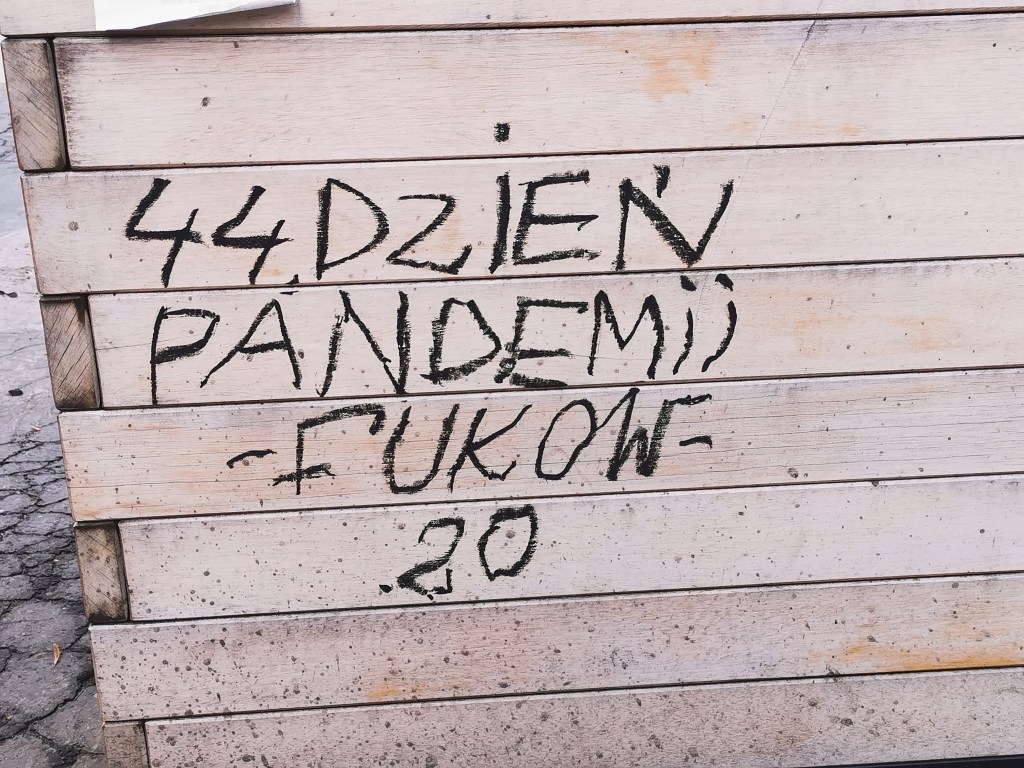 44 DZIEŃ
PANDEMII
-FUKOW-
20